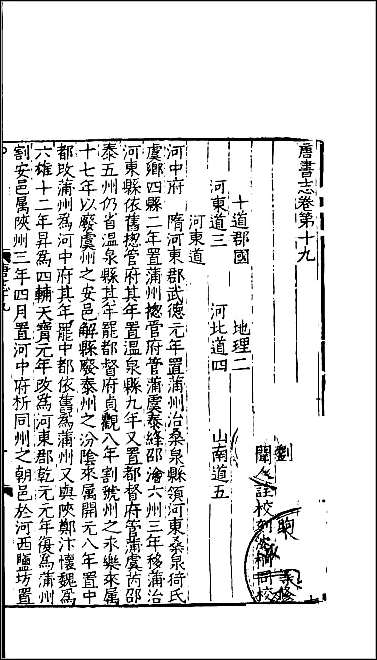 唐書志卷第十九
劉 昫 等修
聞人詮校刻沈桐同校
十道郡國 地理二
河東道三 河北道四 山南道五
河東道
河中府 隋河東郡武德元年置蒲州治桑泉縣領河東桑泉猗氏
虞鄉四縣二年置蒲州揔管府管蒲虞泰絳邵澮六州三年移蒲治
河東縣依舊揔管府其年置溫泉縣九年又置都督府管蒲虞芮邵
泰五州仍省溫泉縣其年罷都督府貞觀八年割虢州之永樂來屬
十七年以廢虞州之安邑解縣廢泰州之汾陰來屬開元八年置中
都改蒲州為河中府其年罷中都依舊為蒲州又與陝鄭汴懷魏為
六雄十二年昇為四輔天寶元年改為河東郡乾元元年復為蒲州
割安邑屬陝州三年四月置河中府析同州之朝邑於河西鹽坊置
唐志十九